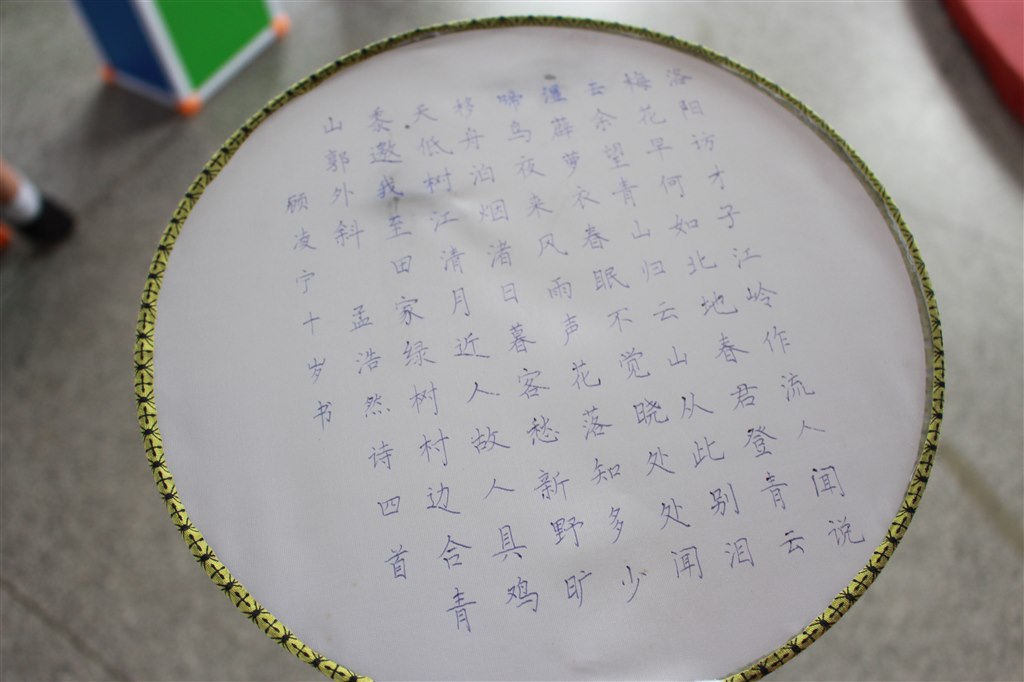 洛阳访才子江岭作流人闻说
梅花早何如北地春君登青云
云余望青山归云山从此别泪
湿薜萝衣春眠不觉晓处处闻
啼鸟夜来风雨声花落知多少
移舟泊烟渚日暮客愁新野旷
天低树江清月近人故人具鸡
黍邀我至田家绿树村边合青
山郭外斜 孟浩然诗四首
顾凌宁十岁书